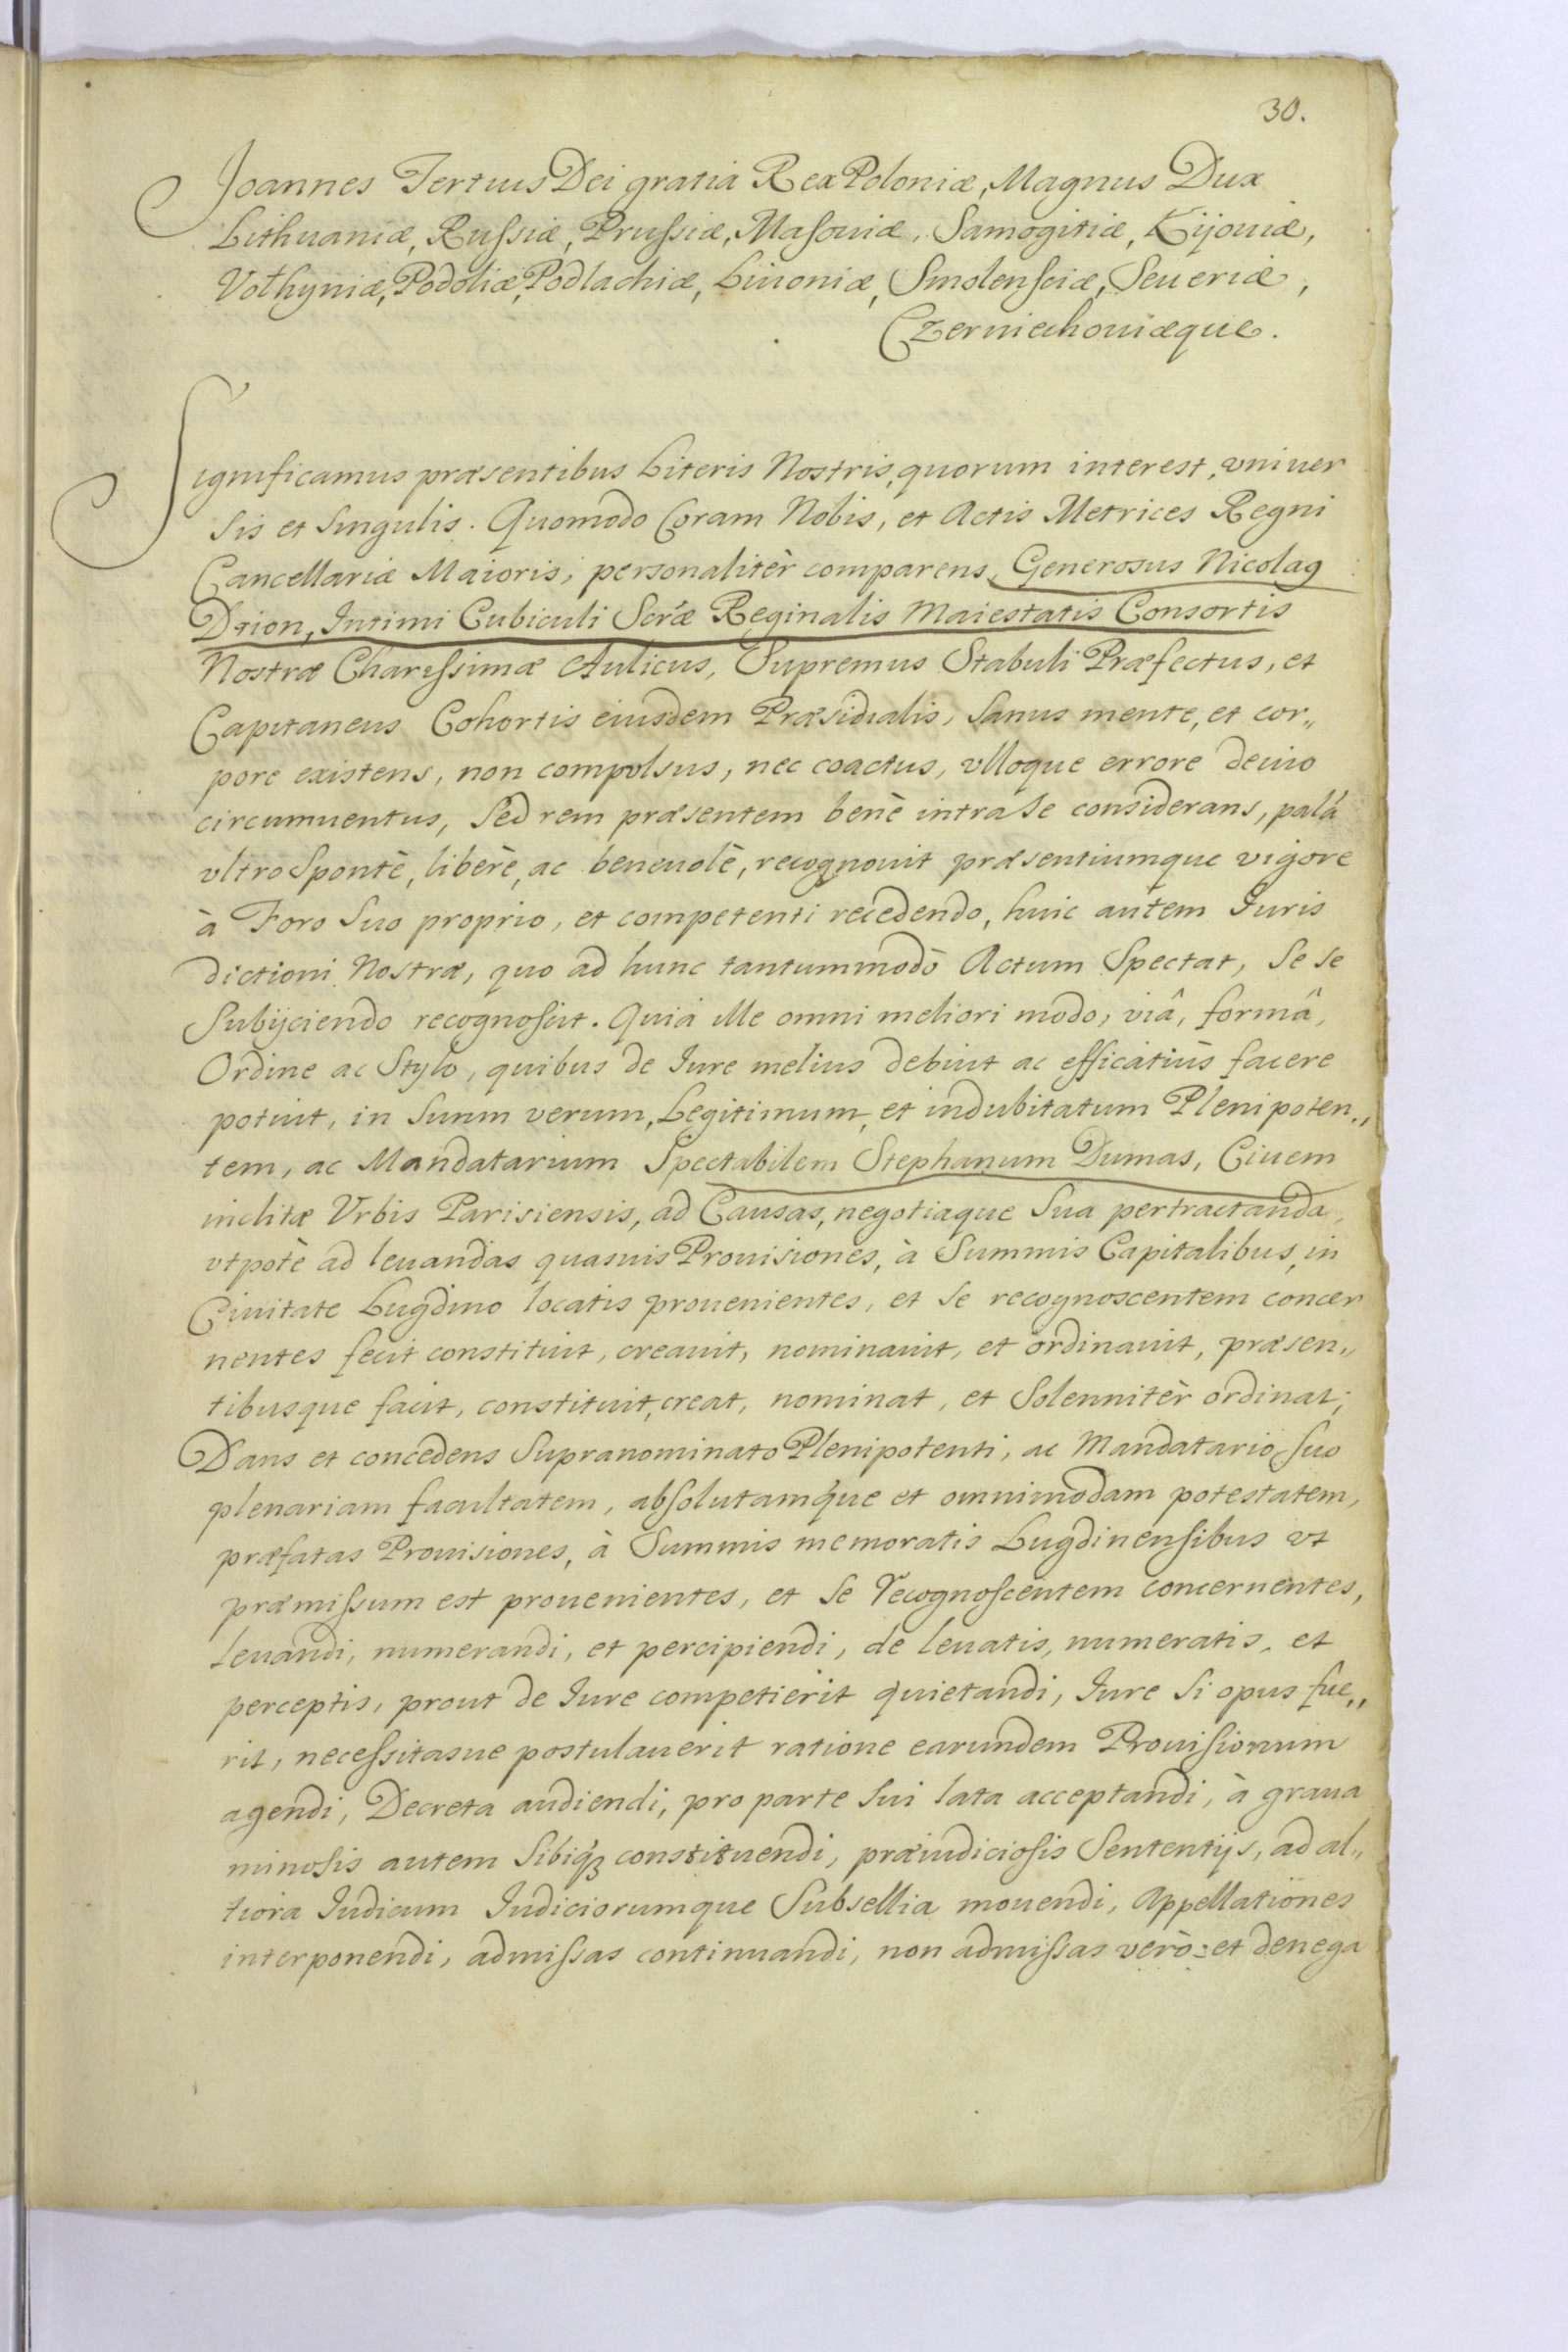 30.
Joannes Tertius Dei gratia Rex Poloniæ, Magnus Dux
Lithuaniæ, Russiæ, Prussiæ, Masouiæ, Samogitiæ, Kijouiæ,
Volhyniæ, Podoliæ, Podlachiæ, Liuoniæ, Smolensciæ, Seueriæ,
Czerniechouiæque.
Significamus præsentibus Literis Nostris, quorum interest, vniuer
sis et singulis. Quomodo Coram Nobis, et Actis Metrices Regni
Cancellariæ Maioris, personalitèr comparens, Generosus Nicolaus
Drion, Intimi Cubiculi Scræ Reginalis Maiestatis Consortis
Nostræ Charissimæ Aulicus, Supremus Stabuli Præfectus, et
Capitaneus Cohortis eiusdem Præsidialis, Sanus mente, et cor„
pore existens, non compulsus, nec coactus, vlloque errore deuio
circumuentus, Sed rem præsentem benè intra Se considerans, palã
vltro Spontè, liberè, ac beneuolè, recognouit præsentiumque vigore
à Foro Suo proprio, et competenti recedendo, huic autem Iuris
dictioni Nostræ, quo ad hunc tantummodò Actum Spectat, Se se
Subijciendo recognoscit. Quia Ille omni meliori modo, viâ, formâ,
Ordine ac Stylo, quibus de Iure melius debuit ac efficatiùs facere
potuit, in Suum verum, Legitimum, et indubitatum Plenipoten„
tem, ac Mandatarium Spectabilem Stephanum Dumas, Ciuem
inclitæ Vrbis Parisiensis, ad Causas, negotiaque Sua pertractanda,
vtpotè ad leuandas quasuis Prouisiones, à Summis Capitalibus, in
Ciuitate Lugdino locatis prouenientes, et Se recognoscentem concer
nentes fecit constituit, creauit, nominauit, et ordinauit, præsen„
tibusque facit, constituit, creat, nominat, et Solennitèr ordinat;
Dans et concedens Supranominato Plenipotenti, ac Mandatario Suo
plenariam facultatem, absolutamque et omnimodam potestatem,
præfatas Prouisiones, à Summis memoratis Lugdinensibus vt
præmissum est prouenientes, et Se recognoscentem concernentes,
leuandi, numerandi, et percipiendi, de leuatis, numeratis, et
perceptis, prout de Iure competierit quietandi, Iure Si opus fue„
rit, necessitasue postulauerit ratione earundem Prouisionum
agendi, Decreta audiendi, pro parte Sui lata acceptandi, à graua
minosis autem Sibiq3 constituendi, præiudiciosis Sententijs, ad al„
tiora Iudicum Iudiciorumque Subsellia mouendi, Appellationes
interponendi, admissas continuandi, non admissas verò: et denega